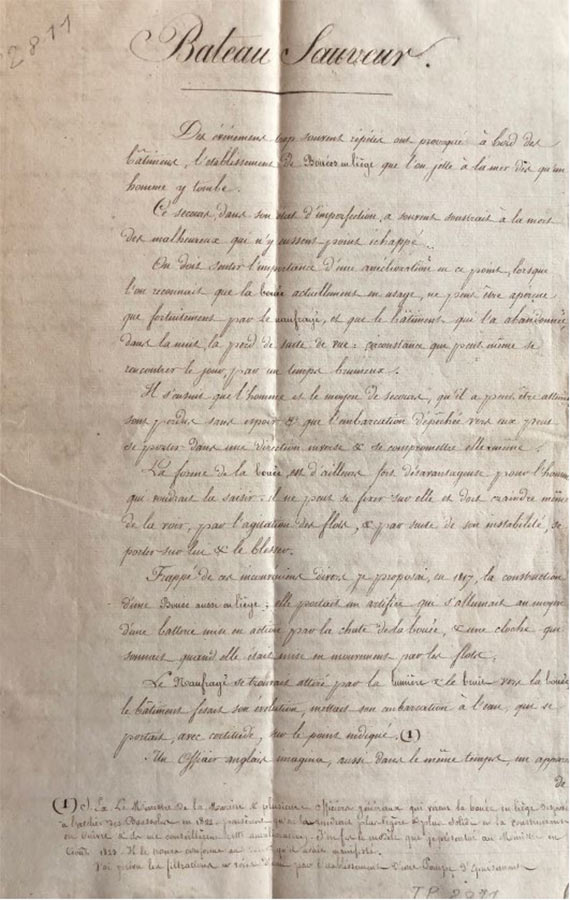 2811
Bateau Sauveur.
Des événemens trop souvent répétés ont provoqué à bord des
bâtimens, l'établissement de Bouées en liège que l'on jette à la mer dès qu'un
homme y tombe.
Ce secours, dans son état d'imperfection, a souvent soustrait à la mort
des malheureux qui n'y eussent point échappé.
On doit sentir l'importance d'une amélioration en ce point, lorsque
l'on reconnait que la bouée actuellement en usage, ne peut être aperçue
que fortuitement par le naufragé, et que le bâtiment qui l'a abandonnée
dans la nuit, la perd de suite de vue: circonstance qui peut même se
rencontrer le jour, par un temps brumeux.
Il s'ensuit que l'homme et le moyen de secours, qu'il a peut être atteint
sont perdus sans espoir & que l'embarcation dépêchée vers eux peut
se porter dans une direction inverse & se compromettre elle même.
La forme de la bouée est d'ailleurs fort désavantageuse pour l'homme
qui voudrait la saisir: il ne peut se fixer sur elle et doit craindre même
de la voir, par l'agitation des flots, & par suite de son instabilité, se
porter sur lui & le blesser.
Frappé de ces inconvéniens divers je proposai, en 1817, la construction
d'une Bouée aussi en liège; elle portait un artifice qui s'allumait au moyen
d'une batterie mise en action par la chute de la bouée, & une cloche qui
sonnait quand elle était mise en mouvement par les flots.
Le Naufragé se trouvait attiré par la lumière & le bruit vers la bouée
le bâtiment fesait son évolution, mettait son embarcation à l'eau, qui se
portait, avec certitude, sur le point indiqué. (1)
Un Officier anglais imagina, aussi dans le même temps, un appareil
de
(1) La Le Ministre de la Marine & plusieurs officiers généraux qui virent la bouée en liège
à l'atelier des Boussoles en 1822
en cuivre & de me
1823
J'ai prévu les filtrations par l'établissement d'une Pompe d'épuisement